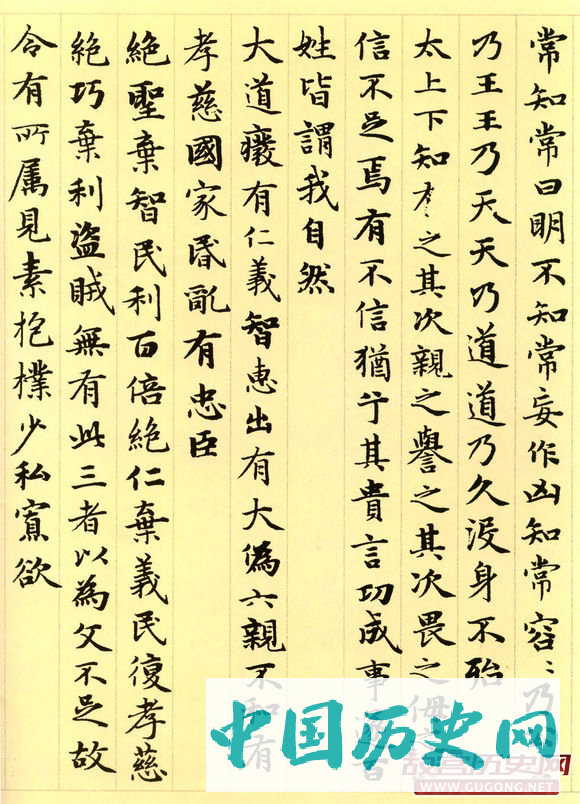 常知常曰明不知常妄作凶知常容〻乃
乃王王乃天天乃道道乃久没身不殆
太上下知有之其次親之譽之其次畏之侮
信不足焉有不信猶乎其貴言功成事遂百
姓皆謂我自然
大道癈有仁義智惠出有大偽六親不和有
孝慈國家昬亂有忠臣
絕聖棄智民利百倍絕仁棄義民復孝慈
絕巧棄利盜賊無有此三者以為文不足故
令有所属見素抱樸少私寡欲
中国历史网
故宫历史网
WWW.GUGONG.NET